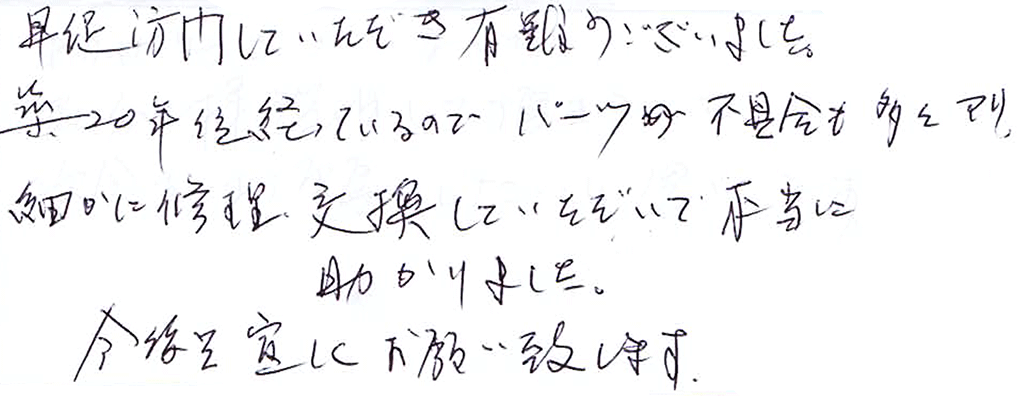 早速訪問していただき有難うございました。
築20年位経っているので パーツの 不具合も多々アリ、
細かに修理、交換していただいて本当に
助かりました。
今後も宜しくお願い致します.